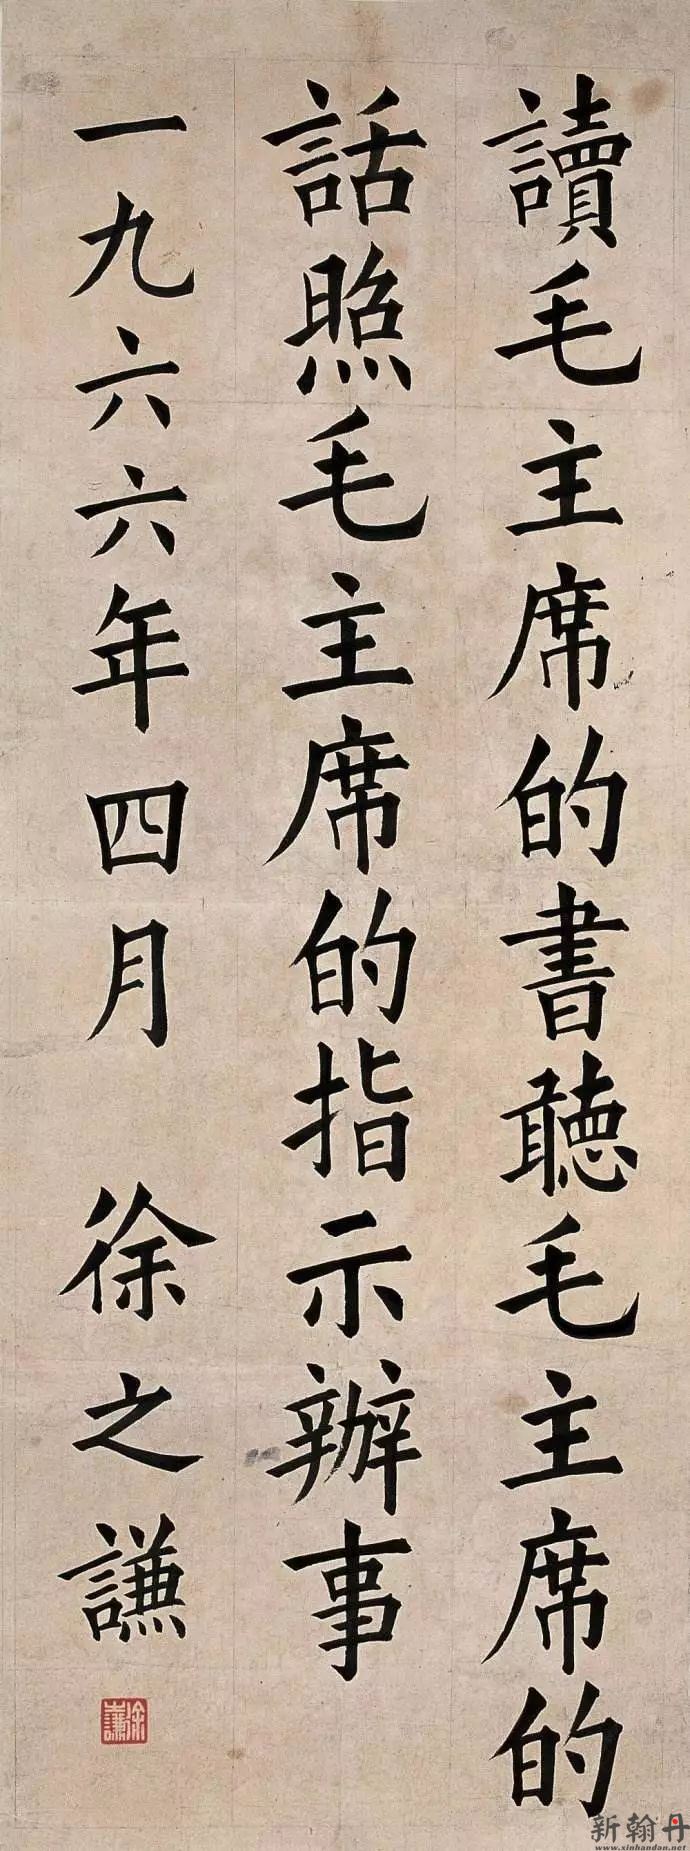 讀毛主席的書聽毛主席的
話照毛主席的指示辦事
一九六六年四月 徐之謙
徐之謙
新翰丹
www.xinhandan.net